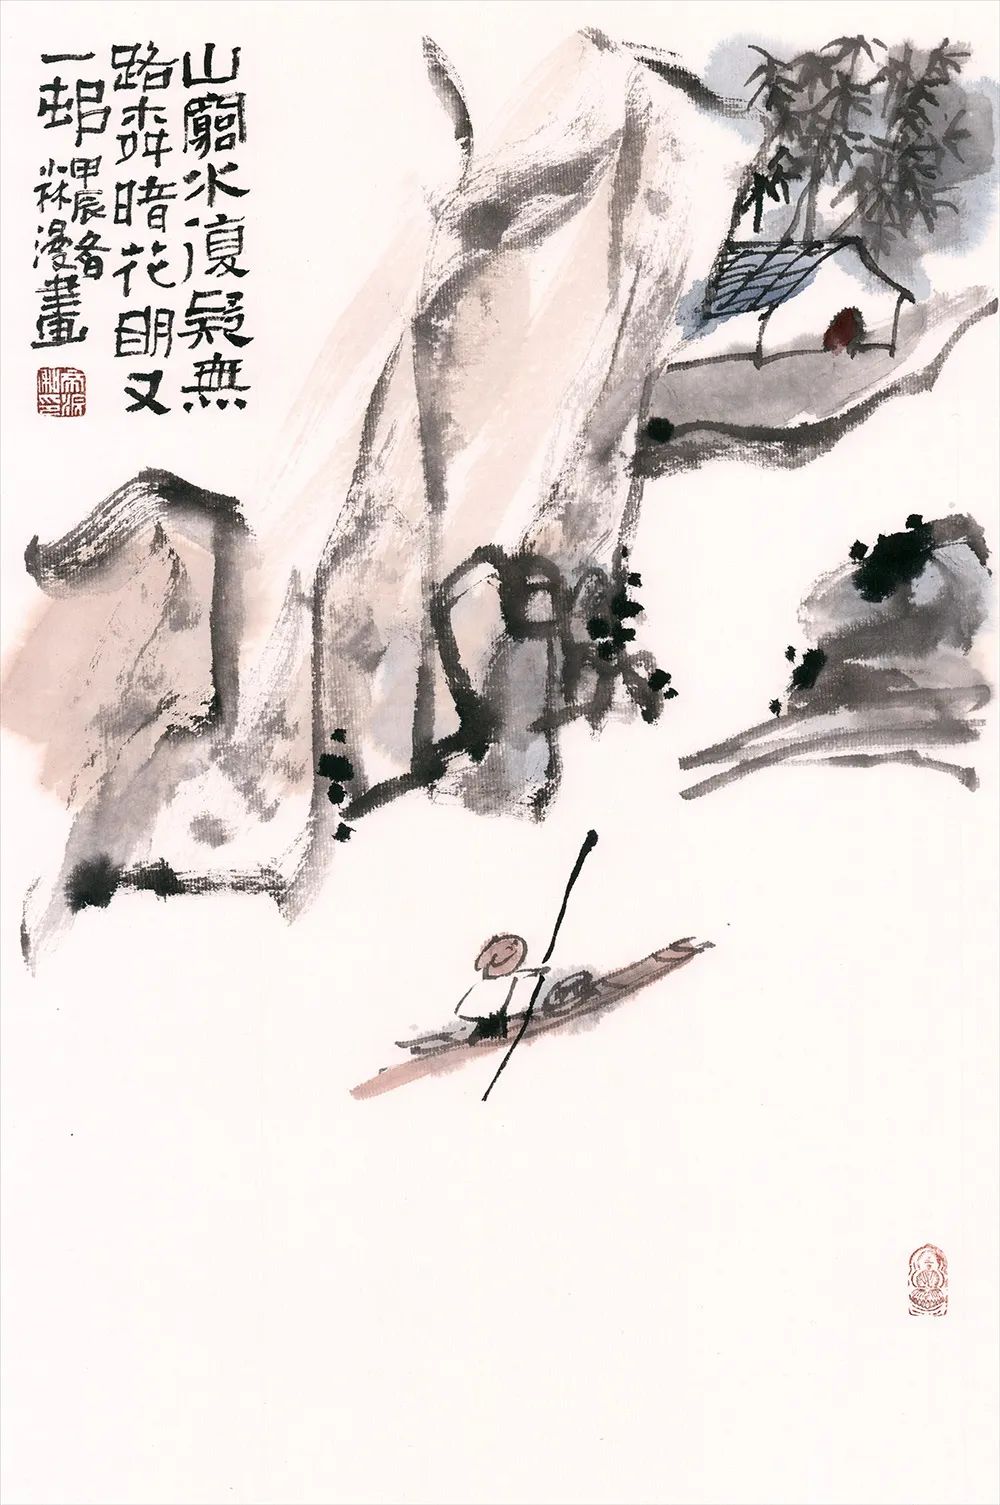 山窮水復疑無
路柳暗花明又
一邨
甲辰冬
小林漫畫